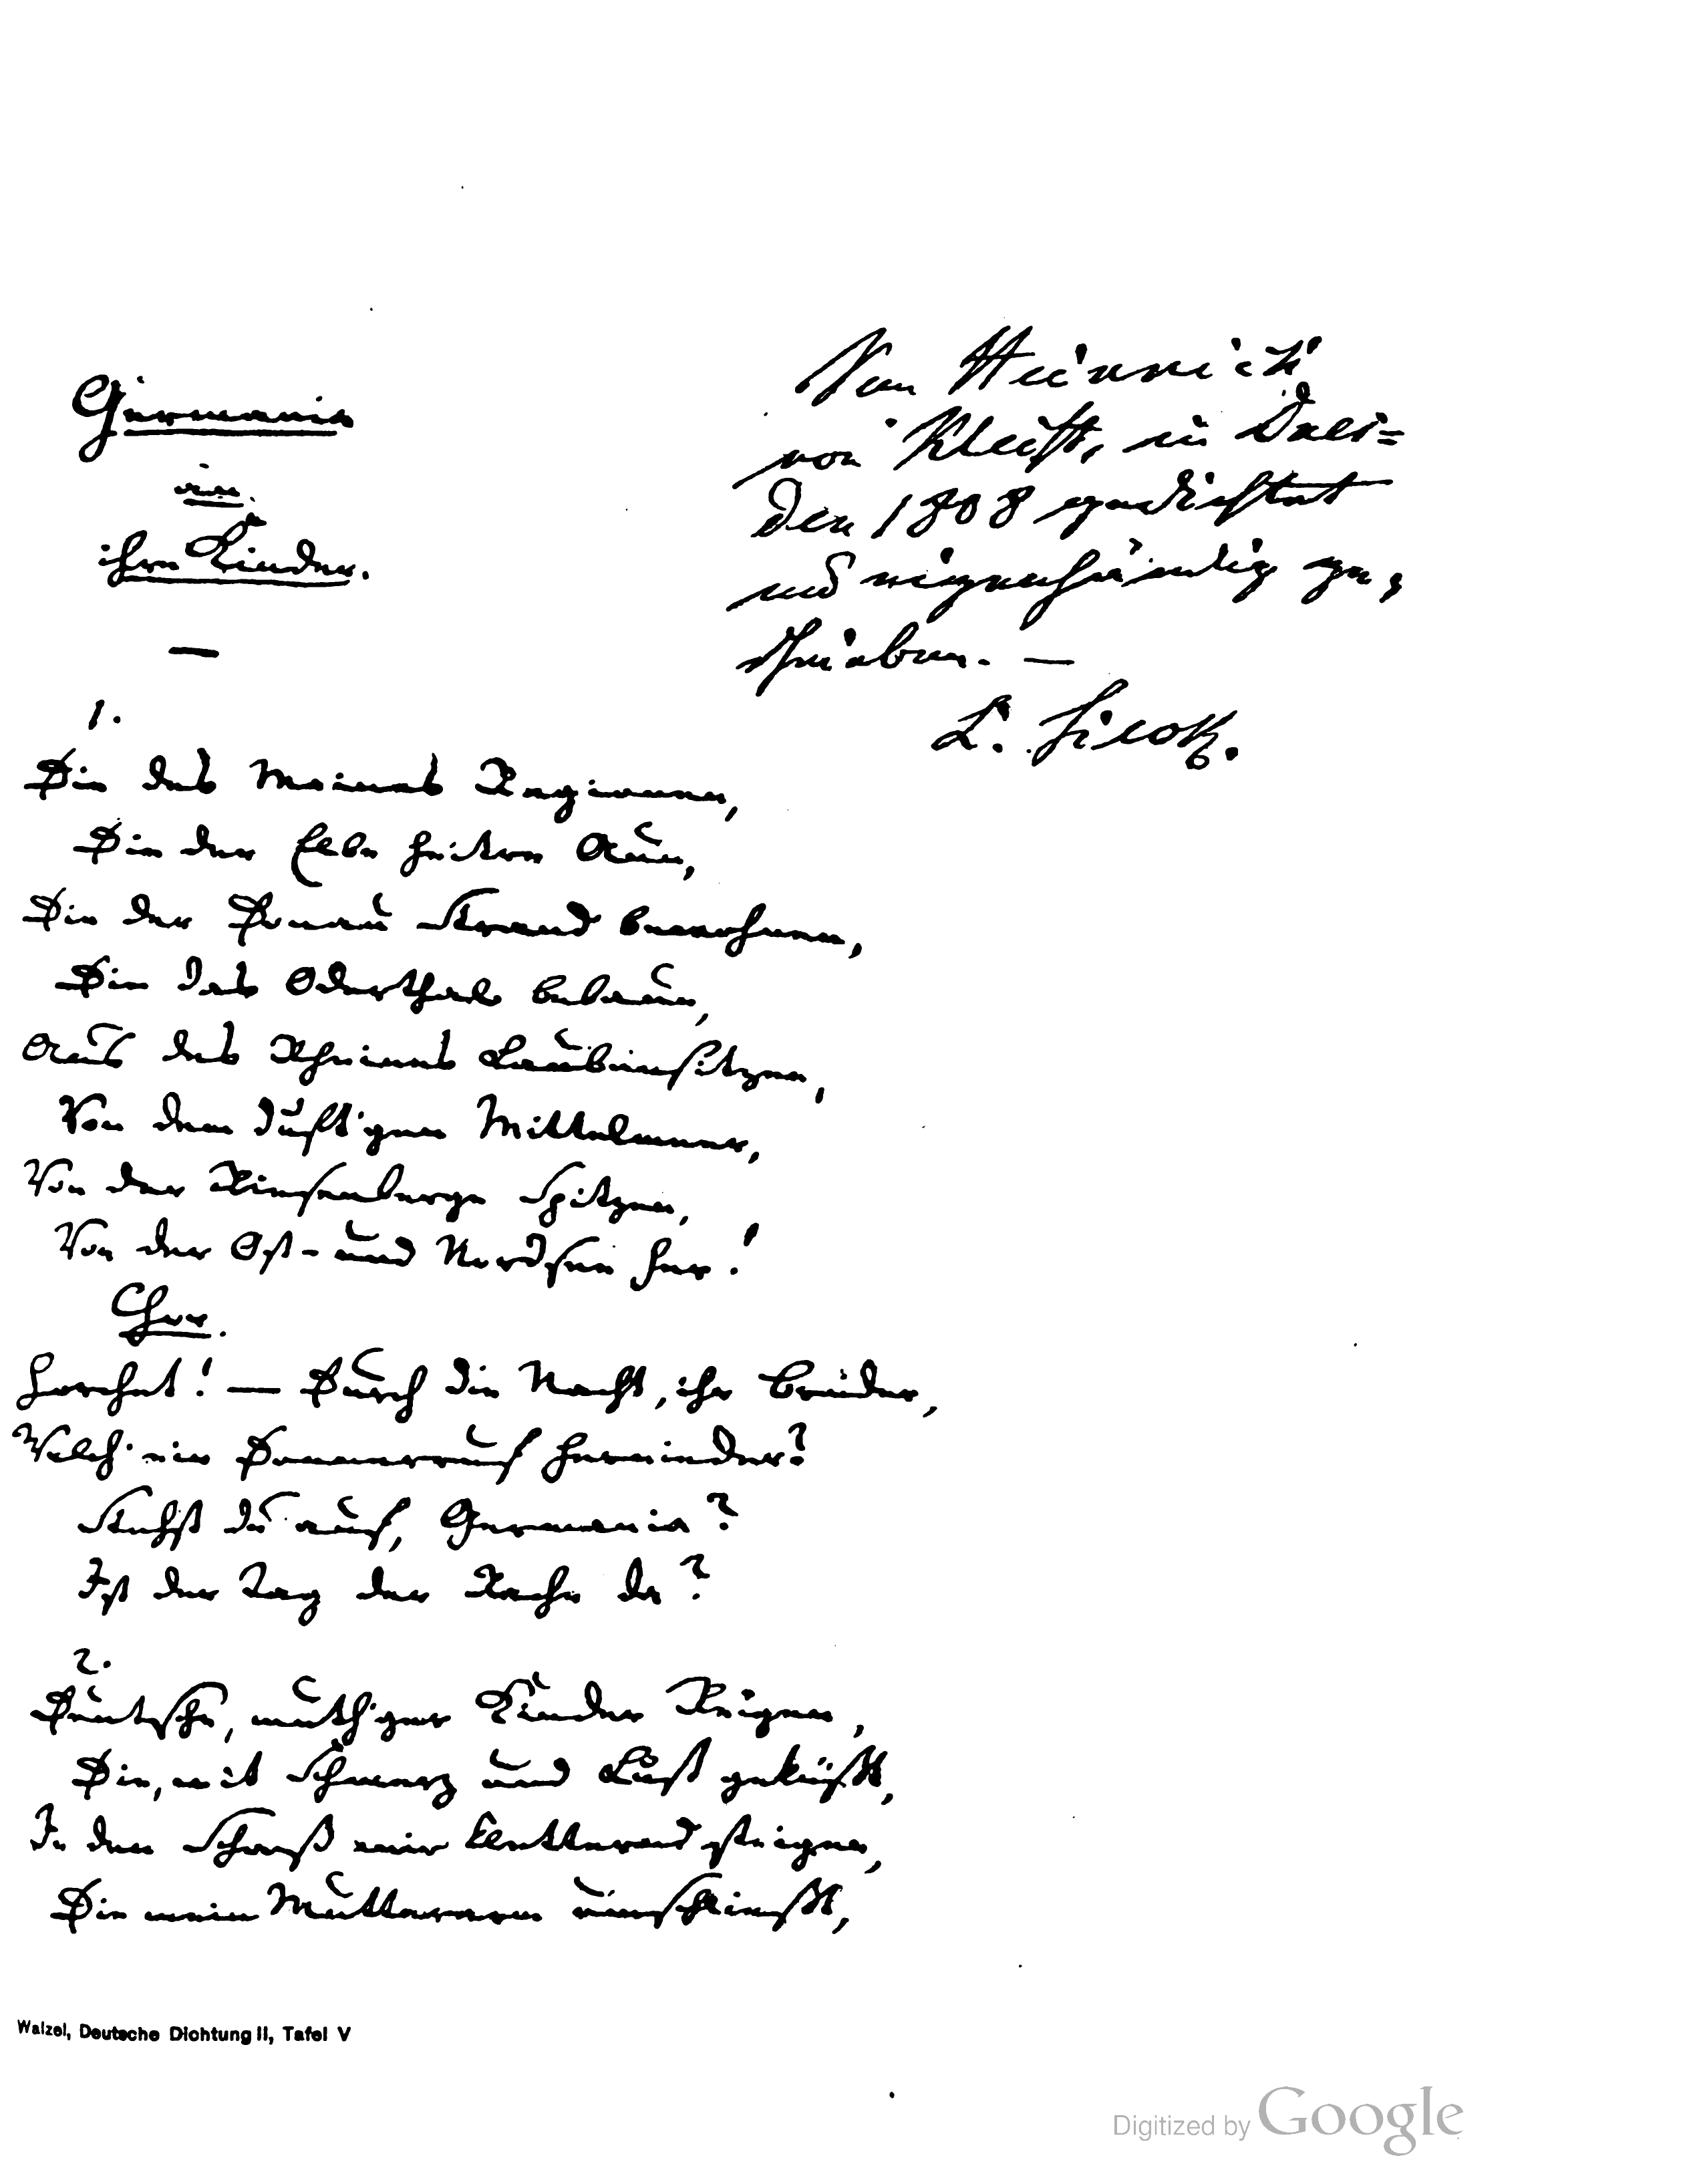 Germania
an
ihre Kinder.
—
Von Heinrich
von Kleist, in Dres=
den 1808 gedichtet
und eigenhändig ge,
schrieben. —
L. Tieck.
1.
Die des Maines Regionen,
Die der Elbe heitre Aun,
Die der Donau Strand bewohnen,
Die das Oderthal bebaun,
Aus des Rheines Laubensitzen,
Von dem duft'gen Mittelmeer,
Von der Riesenberge Spitzen,
Von der Ost- und Nordsee her!
Chor.
Horchet! — Durch die Nacht, ihr Brüder,
Welch' ein Donnerruf hernieder?
Stehst du auf, Germania?
Ist der Tag der Rache da?
2.
Deutsche, muth'ger Kinder Reigen,
Die, mit Schmerz und Lust geküßt,
In den Schooß mir kletternd steigen,
Die mein Mutterarm umschließt,
Walzel, Deutsche Dichtung II, Tafel V
Digitized by Google